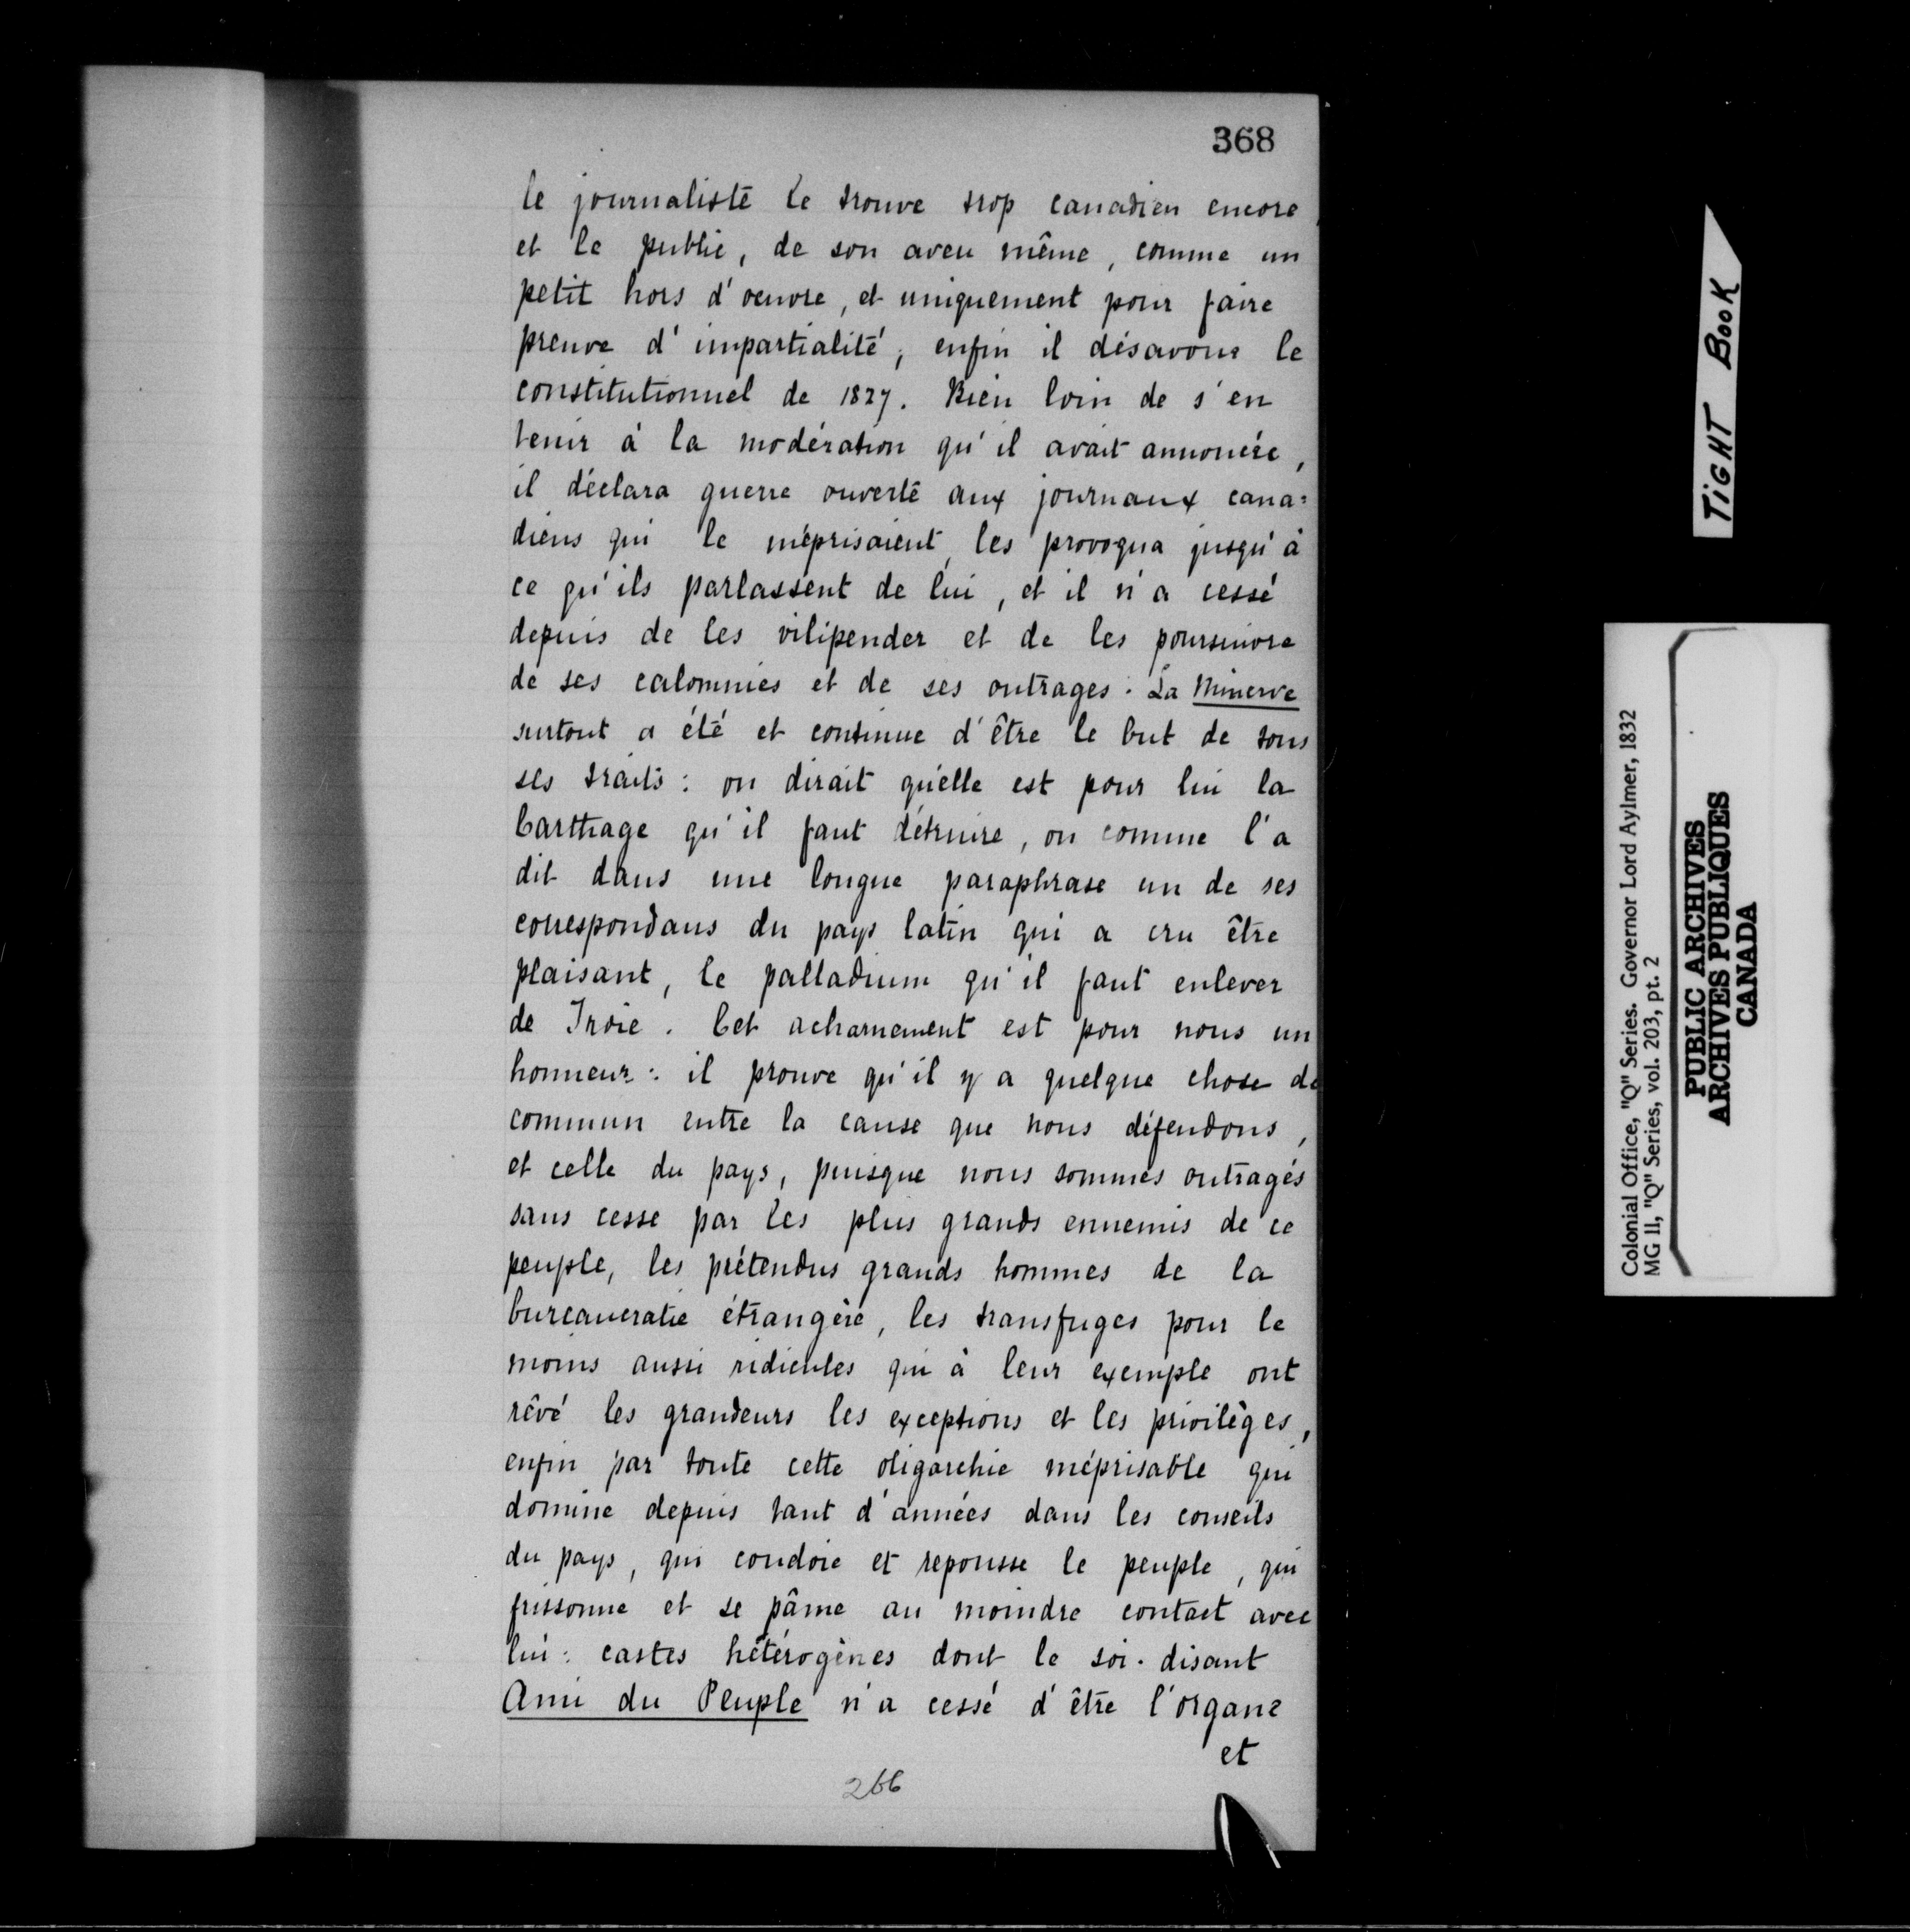 368
le journaliste le trouve trop canadien encore,
et le public, de son aveu même, comme un
petit hors d'oeuvre, et uniquement pour faire
preuve d'impartialité; enfin il désavoue le
constitutionnel de 1827. Bien loin de s'en
tenir à la modération qu'il avait annoncée,
il déclara guerre ouverte aux journaux cana=
diens qui le méprisaient, les provoqua jusqu'à
ce qu'ils parlassent de lui, et il n'a cessé
depuis de les vilipender et de les poursuivre
de ses calomnies et de ses outrages. La Minerve
surtout a été et continue d'être le but de tous
ses traits: on dirait qu'elle est pour lui la
Carthage qu'il faut détruire, ou comme l'a
dit dans une longue paraphrase un de ses
correspondans du pays latin qui a cru être
plaisant, le palladium qu'il faut enlever
de Troie. Cet acharnement est pour nous un
honneur: il prouve qu'il y a quelque chose de
commun entre la cause que nous défendons,
et celle du pays, puisque nous sommes outragés
sans cesse par les plus grands ennemis de ce
peuple, les prétendus grands hommes de la
bureaucratie étrangère, les transfuges pour le
moins aussi ridicules qui à leur exemple ont
rêvé les grandeurs les exceptions et les privilèges,
enfin par toute cette oligarchie méprisable qui
domine depuis tant d'années dans les conseils
du pays, qui coudoie et repousse le peuple, qui
frissonne et se pâme au moindre contact avec
lui: castes hétérogènes dont le soi-disant
Ami du Peuple n'a cessé d'être l'organe
et
266
TIGHT BOOK
Colonial Office, "Q" Series. Governor Lord Aylmer, 1832
MG 11, "Q" Series, vol. 203, pt. 2
PUBLIC ARCHIVES
ARCHIVES PUBLIQUES
CANADA